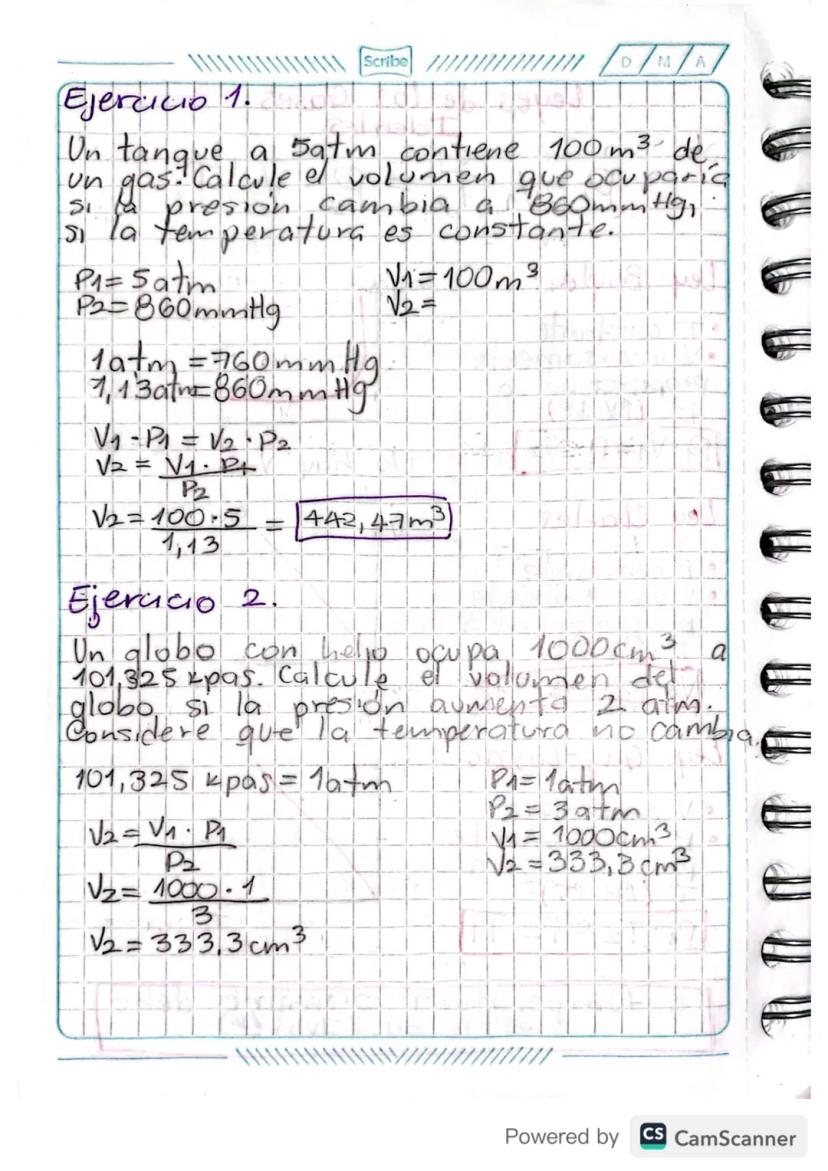 Scribe
D / M / A
Ejercicio 1.
Un tanque a 5atm contiene 100 m³ de
un gas. Calcule el volumen que ocuparía
si la presión cambia a 860mmHg,
si la temperatura es constante.
P1= 5atm V1=100m³
P2=860mmHg V2=
1atm =760mmHg
1,13atm=860mmHg
V1 · P1 = V2 · P2
V2 = V1 · P1
P2
V2 = 100 · 5 = 442,47m³
1,13
Ejercicio 2.
Un globo con helio ocupa 1000cm³ a
101,325 kpas. Calcule el volumen del
globo si la presión aumenta 2 atm.
Considere que la temperatura no cambia.
101,325 kpas = 1atm P1= 1atm
P2 = 3atm
V2 = V1 · P1 V1 = 1000cm³
P2 V2 =333,3cm³
V2= 1000 · 1
3
V2 = 333,3cm³
Powered by CS CamScanner